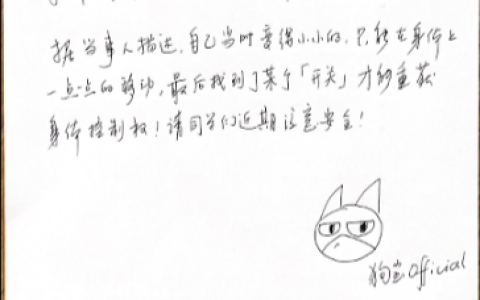 据当事人描述,自己当时变得小小的,只能在身体上
一点点的移动,最后找到了某个「开关」才能重获
身体控制权!请同学们近期注意安全!
狗宝Official